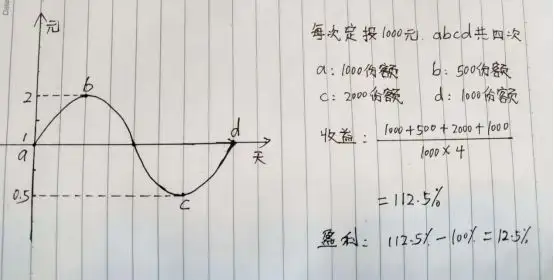 元
2
1
a
b
d
天
0.5
c
每次定投1000元. abcd共四次
a: 1000份额 b: 500份额
c: 2000份额 d: 1000份额
收益: 1000+500+2000+1000
1000×4
=112.5%
盈利: 112.5%-100%=12.5%